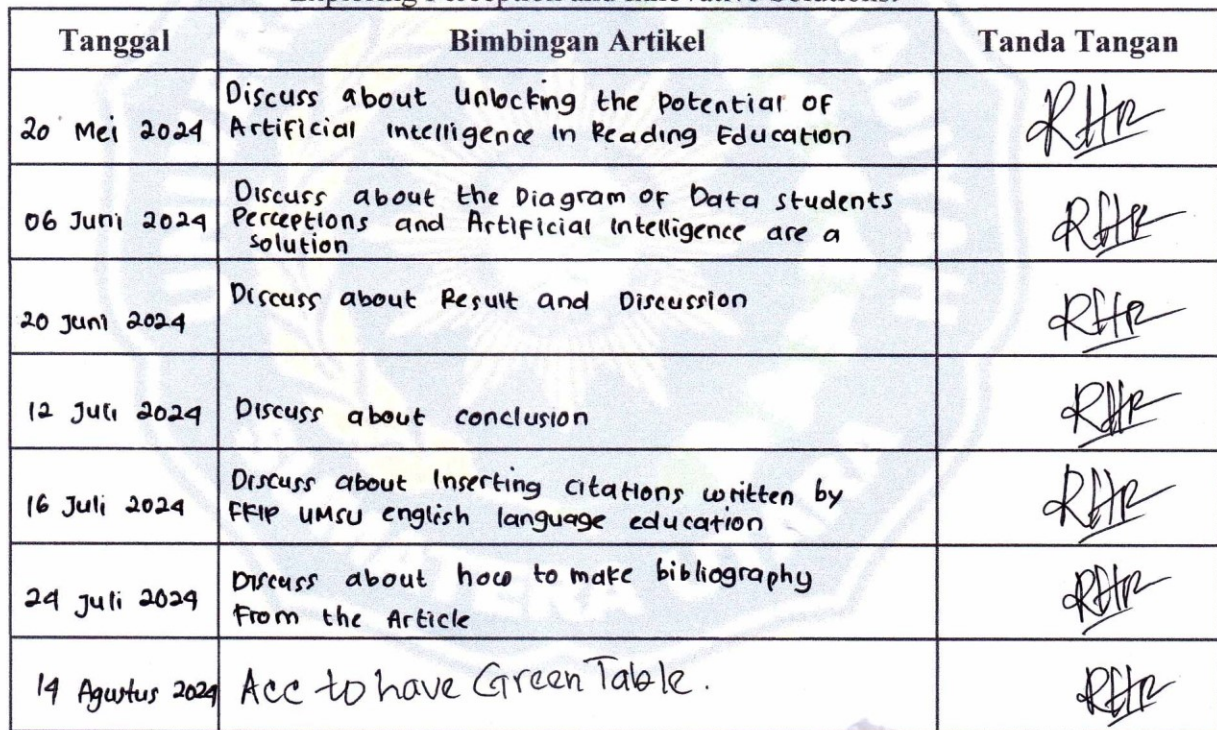 Exploring Perception and Innovative Solutions.
Tanggal Bimbingan Artikel Tanda Tangan
20 Mei 2024 Discuss about Unlocking the Potential of
Artificial Intelligence In Reading Education
06 Juni 2024 Discuss about the Diagram of Data students
Perceptions and Artificial Intelligence are a
solution
20 Juni 2024 Discuss about Result and Discussion
12 Juli 2024 Discuss about conclusion
16 Juli 2024 Discuss about Inserting citations written by
FKIP UMSU english language education
24 Juli 2024 Discuss about how to make bibliography
From the Article
14 Agustus 2024 Acc to have Green Table.